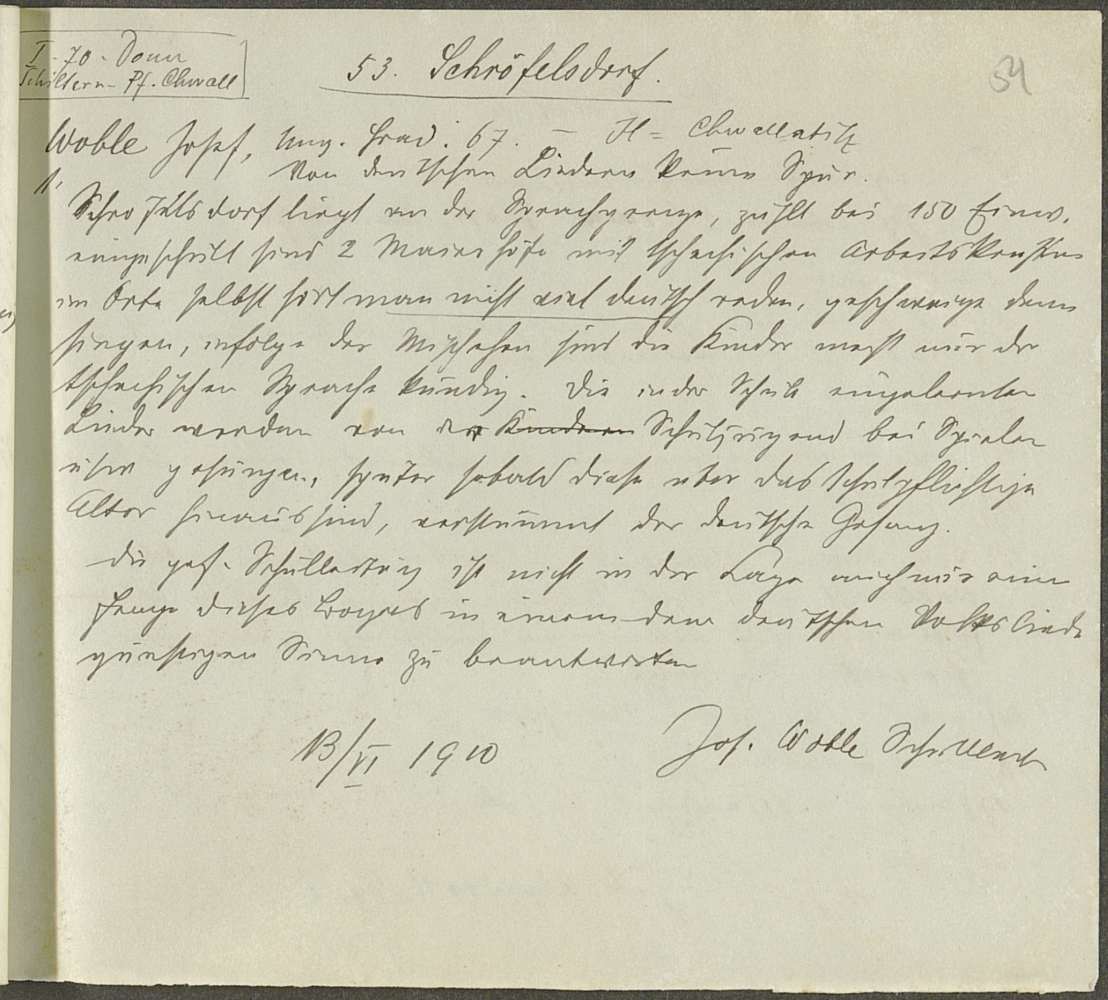 I - 70 - Donn
Schiltern - Pf. Chwall
53. Schröfelsdorf.
54
Woble Josef, Ung. Hrad. 67. – H = Chwallatitz
Von deutschen Liedern keine Spur.
Schröfelsdorf liegt an der Sprachgrenze, zählt bei 150 Einw.
eingeschult sind 2 Maierhöfe mit tschechischen Arbeitskräften
im Orte selbst hört man nicht viel deutsch reden, geschweige denn
singen, infolge der Mischehen sind die Kinder meist nur der
tschechischen Sprache kundig. Die in der Schule eingelernten
Lieder werden von der Kindern Schuljugend bei Spielen
usw gesungen, später sobald diese über das schulpflichtige
Alter hinaus sind, verstummt der deutsche Gesang.
Die gef. Schulleitung ist nicht in der Lage auch nur eine
Frage dieses Bogens in einem dem deutschen Volksliede
günstigen Sinne zu beantworten
13/VI 1910
Jos. Woble